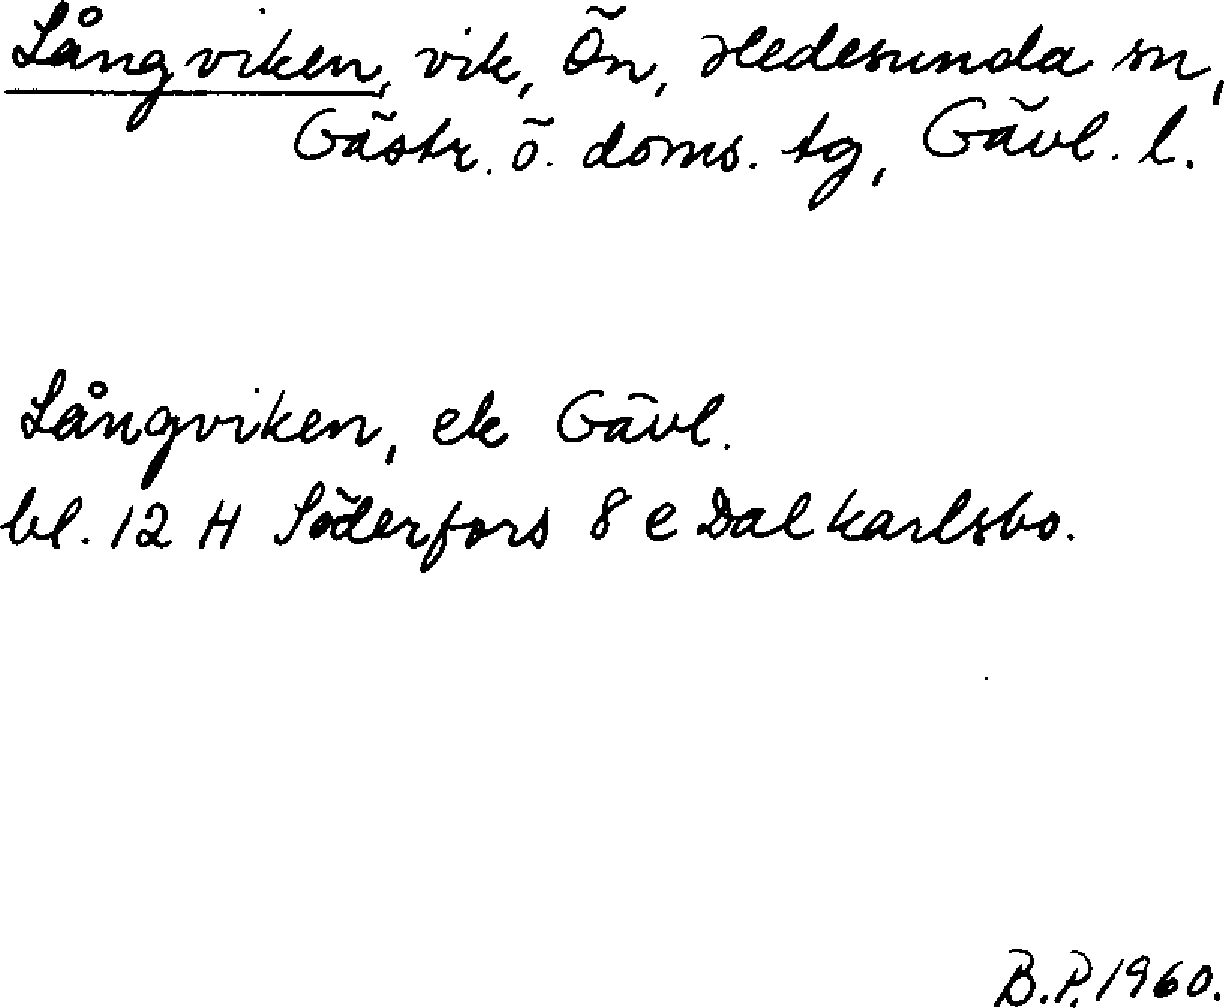 Långviken, vik, Ön, Hedesunda sn,
Gästr. ö. doms. tg, Gävl. l.
Långviken, ek Gävl.
bl. 12 H Söderfors 8 e Dalkarlsbo.
B.P. 1960.